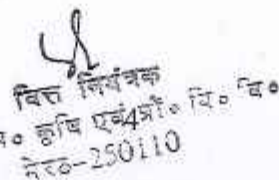 वित्त नियंत्रक
व० कृषि एवं4प्रौ० वि० वि०
मेरठ-250110